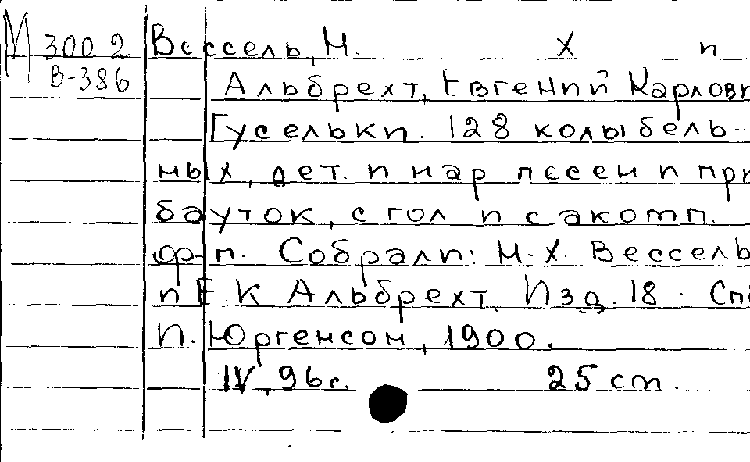 М 300 2 Вессель, М. Х и
В-386
Альбрехт, Евгений Карлов
Гусельки. 128 колыбель-
ных, дет. и нар песен и при
бауток, с гол и с акомп.
ф-п. Собрали: М. Х. Вессель
и Е К Альбрехт. Изд. 18 - Спб
П. Юргенсон, 1900.
IV, 96 с. 25 cm.